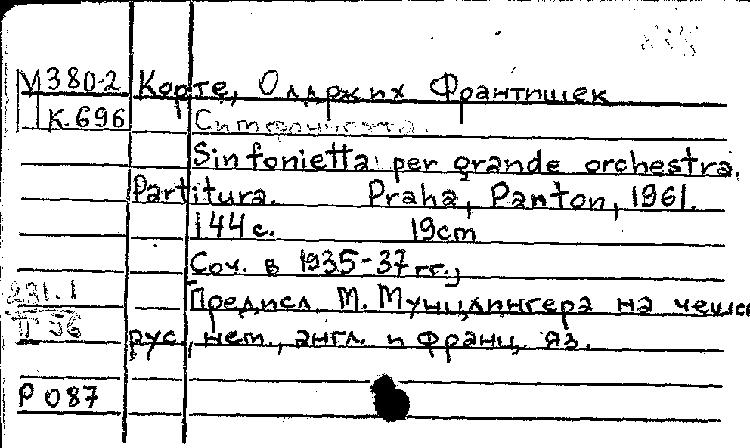 М380-2 Корте, Олдржих Франтишек
К.696 Симфониетта.
Sinfonietta per grande orchestra.
Partitura. Praha, Panton, 1961.
144 с. 19cm
Соч. в 1935-37 гг.,
231.1 Предисл. М. Мунцлингера на чешск
П 36 рус., нем., англ. и франц. яз.
Р 087